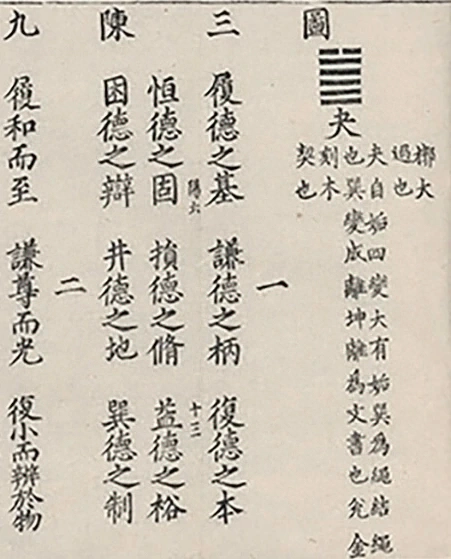 圖
夬
槨大
過也
夬自姤四變大有姤巽為繩結繩
也巽變成離坤離為文書也兊金
刻木
契也
一
三 履德之基 謙德之柄 復德之本
陽六 十三
恒德之固 損德之脩 益德之裕
陳 困德之辯 井德之地 巽德之制
二
九 履和而至 謙尊而光 復小而辨於物